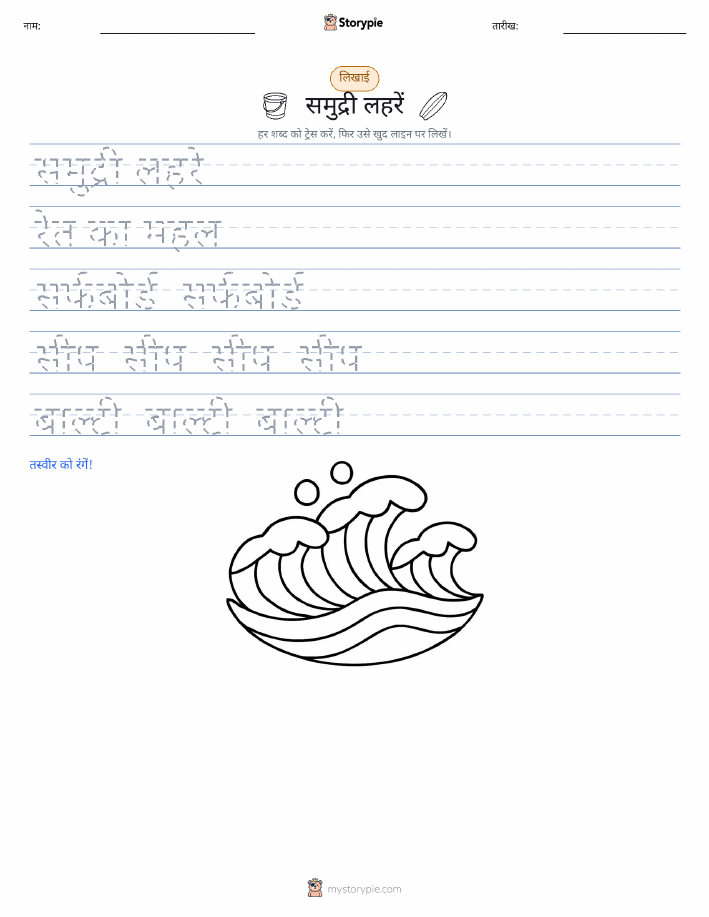 नाम:
Storypie
तारीख:
लिखाई
समुद्री लहरें
हर शब्द को ट्रेस करें, फिर उसे खुद लाइन पर लिखें।
समुद्री लहरें
रेत का महल
सर्फबोर्ड सर्फबोर्ड
सीप सीप सीप सीप
बाल्टी बाल्टी बाल्टी
तस्वीर को रंगें!
mystorypie.com